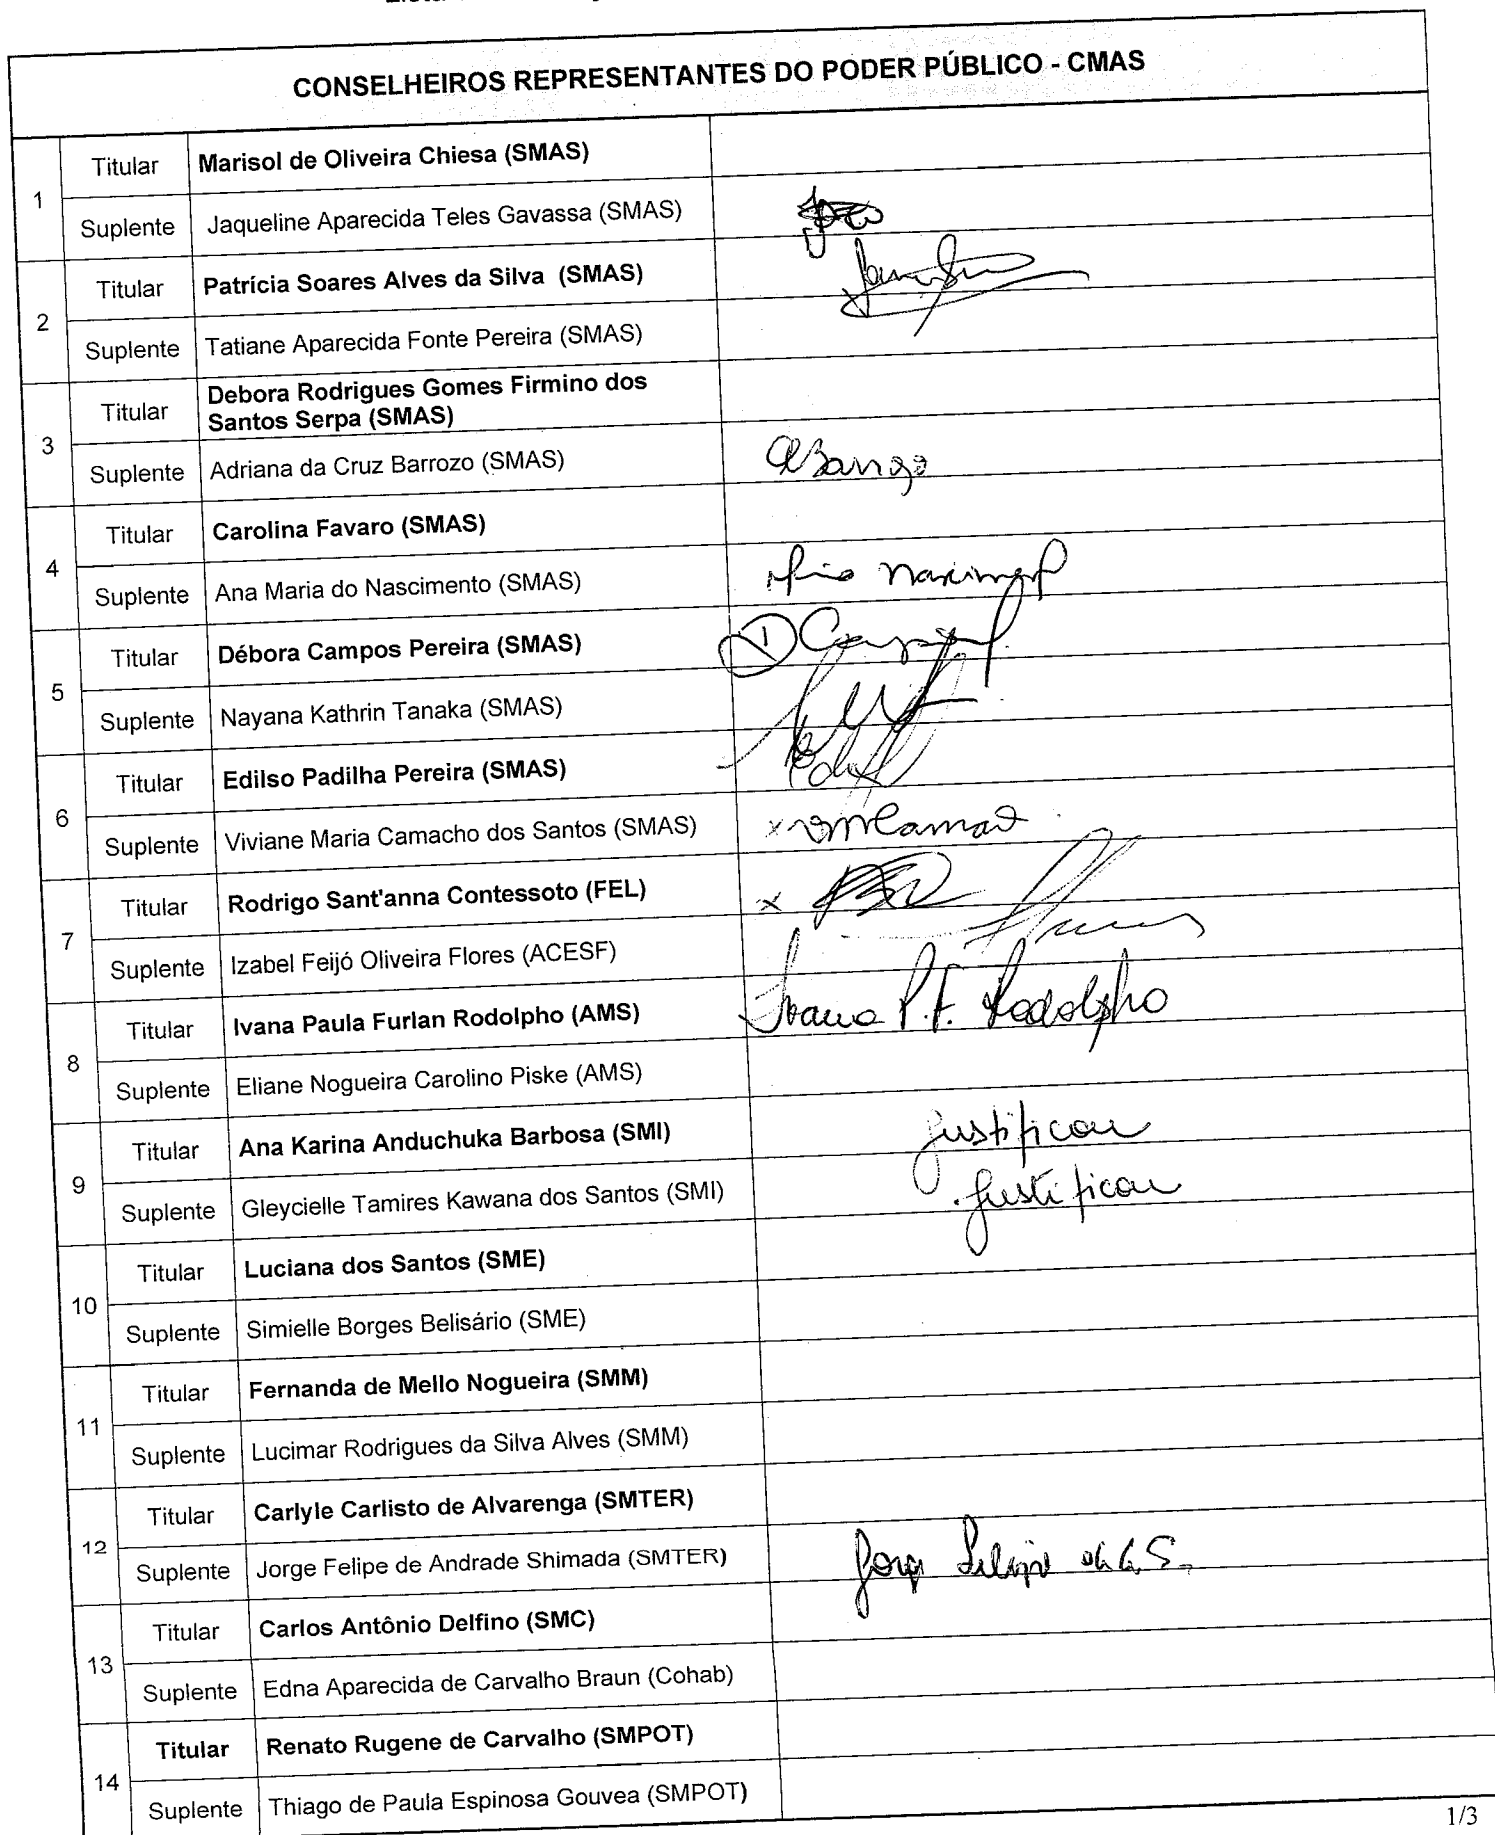 CONSELHEIROS REPRESENTANTES DO PODER PÚBLICO - CMAS
1
Titular Marisol de Oliveira Chiesa (SMAS)
Suplente Jaqueline Aparecida Teles Gavassa (SMAS)
2
Titular Patrícia Soares Alves da Silva (SMAS)
Suplente Tatiane Aparecida Fonte Pereira (SMAS)
3
Titular Debora Rodrigues Gomes Firmino dos
Santos Serpa (SMAS)
Suplente Adriana da Cruz Barrozo (SMAS)
4
Titular Carolina Favaro (SMAS)
Suplente Ana Maria do Nascimento (SMAS)
5
Titular Débora Campos Pereira (SMAS)
Suplente Nayana Kathrin Tanaka (SMAS)
6
Titular Edilso Padilha Pereira (SMAS)
Suplente Viviane Maria Camacho dos Santos (SMAS) x
7
Titular Rodrigo Sant'anna Contessoto (FEL) x
Suplente Izabel Feijó Oliveira Flores (ACESF)
8
Titular Ivana Paula Furlan Rodolpho (AMS) Ivana P. F. Rodolpho
Suplente Eliane Nogueira Carolino Piske (AMS)
9
Titular Ana Karina Anduchuka Barbosa (SMI) Justificou
Suplente Gleycielle Tamires Kawana dos Santos (SMI) Justificou
10
Titular Luciana dos Santos (SME)
Suplente Simielle Borges Belisário (SME)
11
Titular Fernanda de Mello Nogueira (SMM)
Suplente Lucimar Rodrigues da Silva Alves (SMM)
12
Titular Carlyle Carlisto de Alvarenga (SMTER)
Suplente Jorge Felipe de Andrade Shimada (SMTER) Jorge Felipe de A. S.
13
Titular Carlos Antônio Delfino (SMC)
Suplente Edna Aparecida de Carvalho Braun (Cohab)
14
Titular Renato Rugene de Carvalho (SMPOT)
Suplente Thiago de Paula Espinosa Gouvea (SMPOT)
1/3